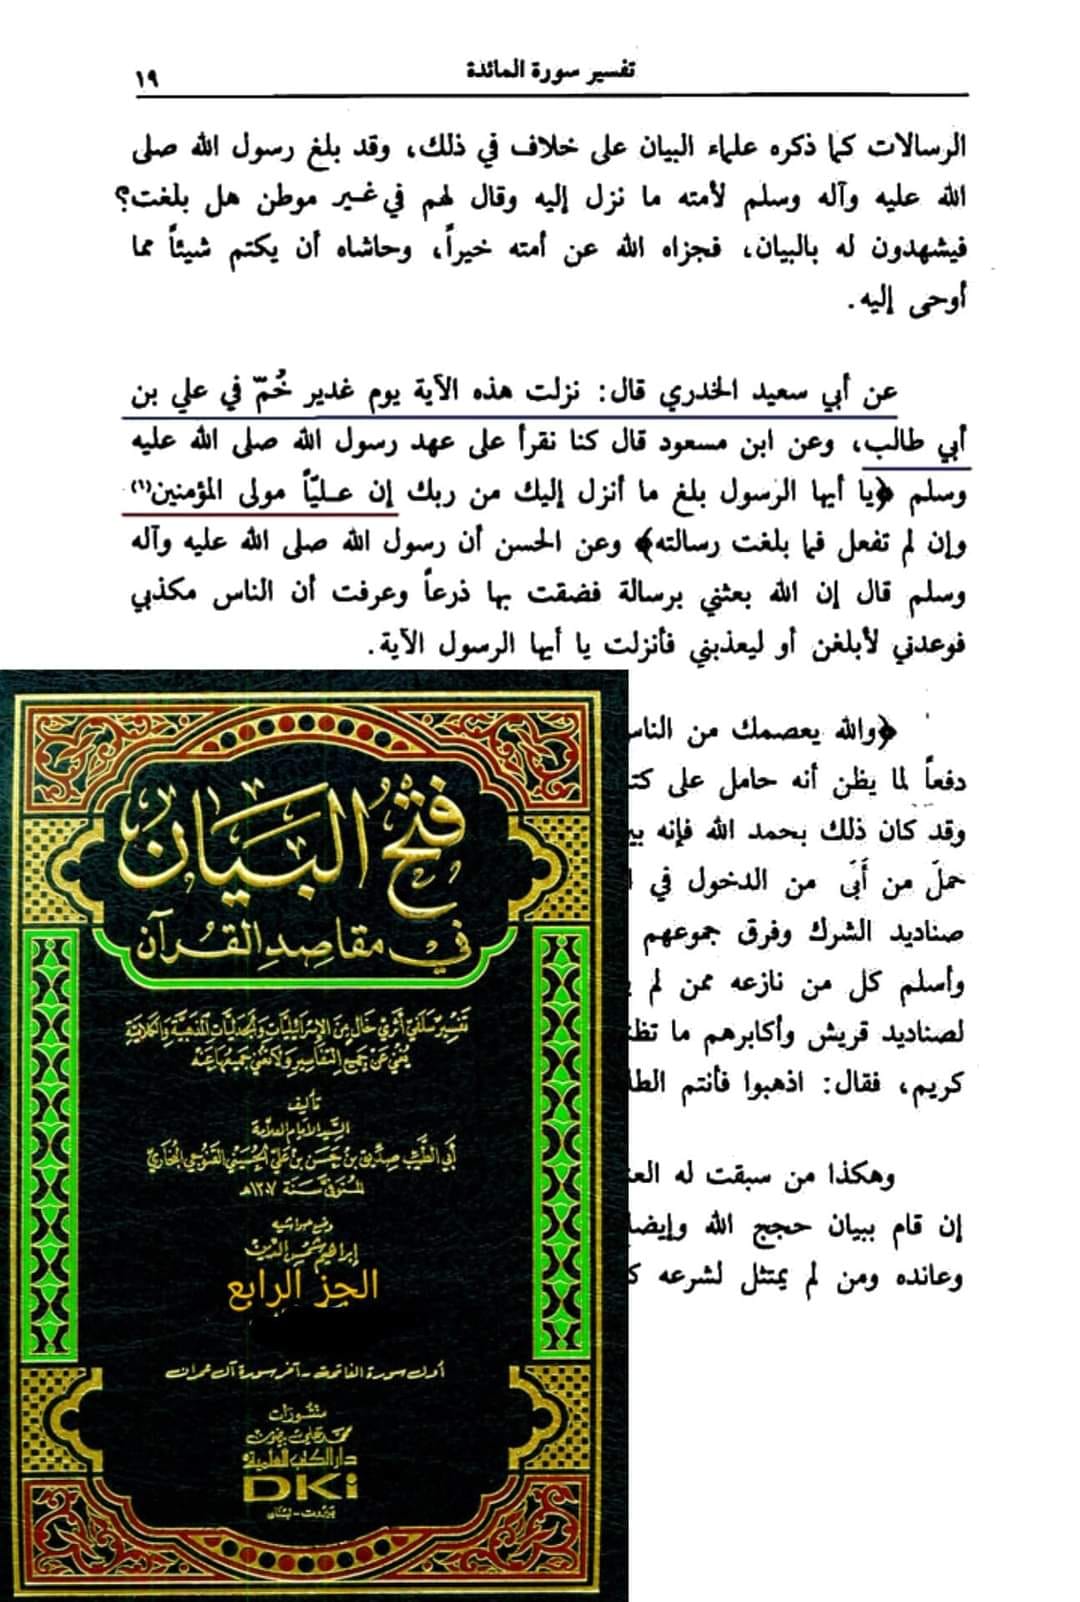 تفسير سورة المائدة
١٩
الرسالات كما ذكره علماء البيان على خلاف في ذلك، وقد بلغ رسول الله صلى
الله عليه وآله وسلم لأمته ما نزل إليه وقال لهم في غير موطن هل بلغت؟
فيشهدون له بالبيان، فجزاه الله عن أمته خيراً، وحاشاه أن يكتم شيئاً مما
أوحى إليه.
عن أبي سعيد الخدري قال: نزلت هذه الآية يوم غدير خُمّ في علي بن
أبي طالب، وعن ابن مسعود قال كنا نقرأ على عهد رسول الله صلى الله عليه
وسلم ﴿يا أيها الرسول بلغ ما أنزل إليك من ربك إن عليّاً مولى المؤمنين(١)
وإن لم تفعل فما بلغت رسالته﴾ وعن الحسن أن رسول الله صلى الله عليه وآله
وسلم قال إن الله بعثني برسالة فضقت بها ذرعاً وعرفت أن الناس مكذبي
فوعدني لأبلغن أو ليعذبني فأنزلت يا أيها الرسول الآية.
﴿والله يعصمك من الناس
دفعاً لما يظن أنه حامل على كت
وقد كان ذلك بحمد الله فإنه بي
حملَ من أَبَى من الدخول في
صناديد الشرك وفرق جموعهم
وأسلم كل من نازعه ممن لم
لصناديد قريش وأكابرهم ما تظن
كريم، فقال: اذهبوا فأنتم الطل
وهكذا من سبقت له العن
إن قام ببيان حجج الله وإيضا
وعانده ومن لم يمتثل لشرعه ك
فَتْحُ البَيَان
في مقاصد القُرآن
تفسير سلفي أثري خال من الإسرائيليات والجدليات المذهبية والكلامية
يغني عن جميع التفاسير ولا تغني جميعها عنه
تأليف
السيد الإمام العلامة
أبي الطيب صديق بن حسن بن علي الحسيني القنوجي البخاري
المتوفى سنة ١٣٠٧هـ
وضع حواشيه
إبراهيم شمس الدين
الجز الرابع
أول سورة الفاتحة - آخر سورة آل عمران
منشورات
محمد علي بيضون
دار الكتب العلمية
DKi
بيروت - لبنان